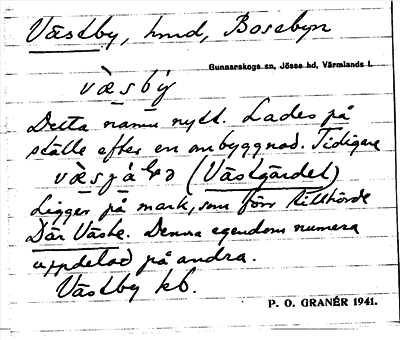 Västby, hmd, Bosebyn
Gunnarskogs sn, Jösse hd, Värmlands l.
væsby
Detta namn nytt. Lades på
ställe efter en ombyggnad. Tidigare
(Västgärdet)
Ligger på mark, som förr tillhörde
Där Väste. Denna egendom numera
uppdelad på andra.
Västby kb.
P. O. GRANÉR 1941.